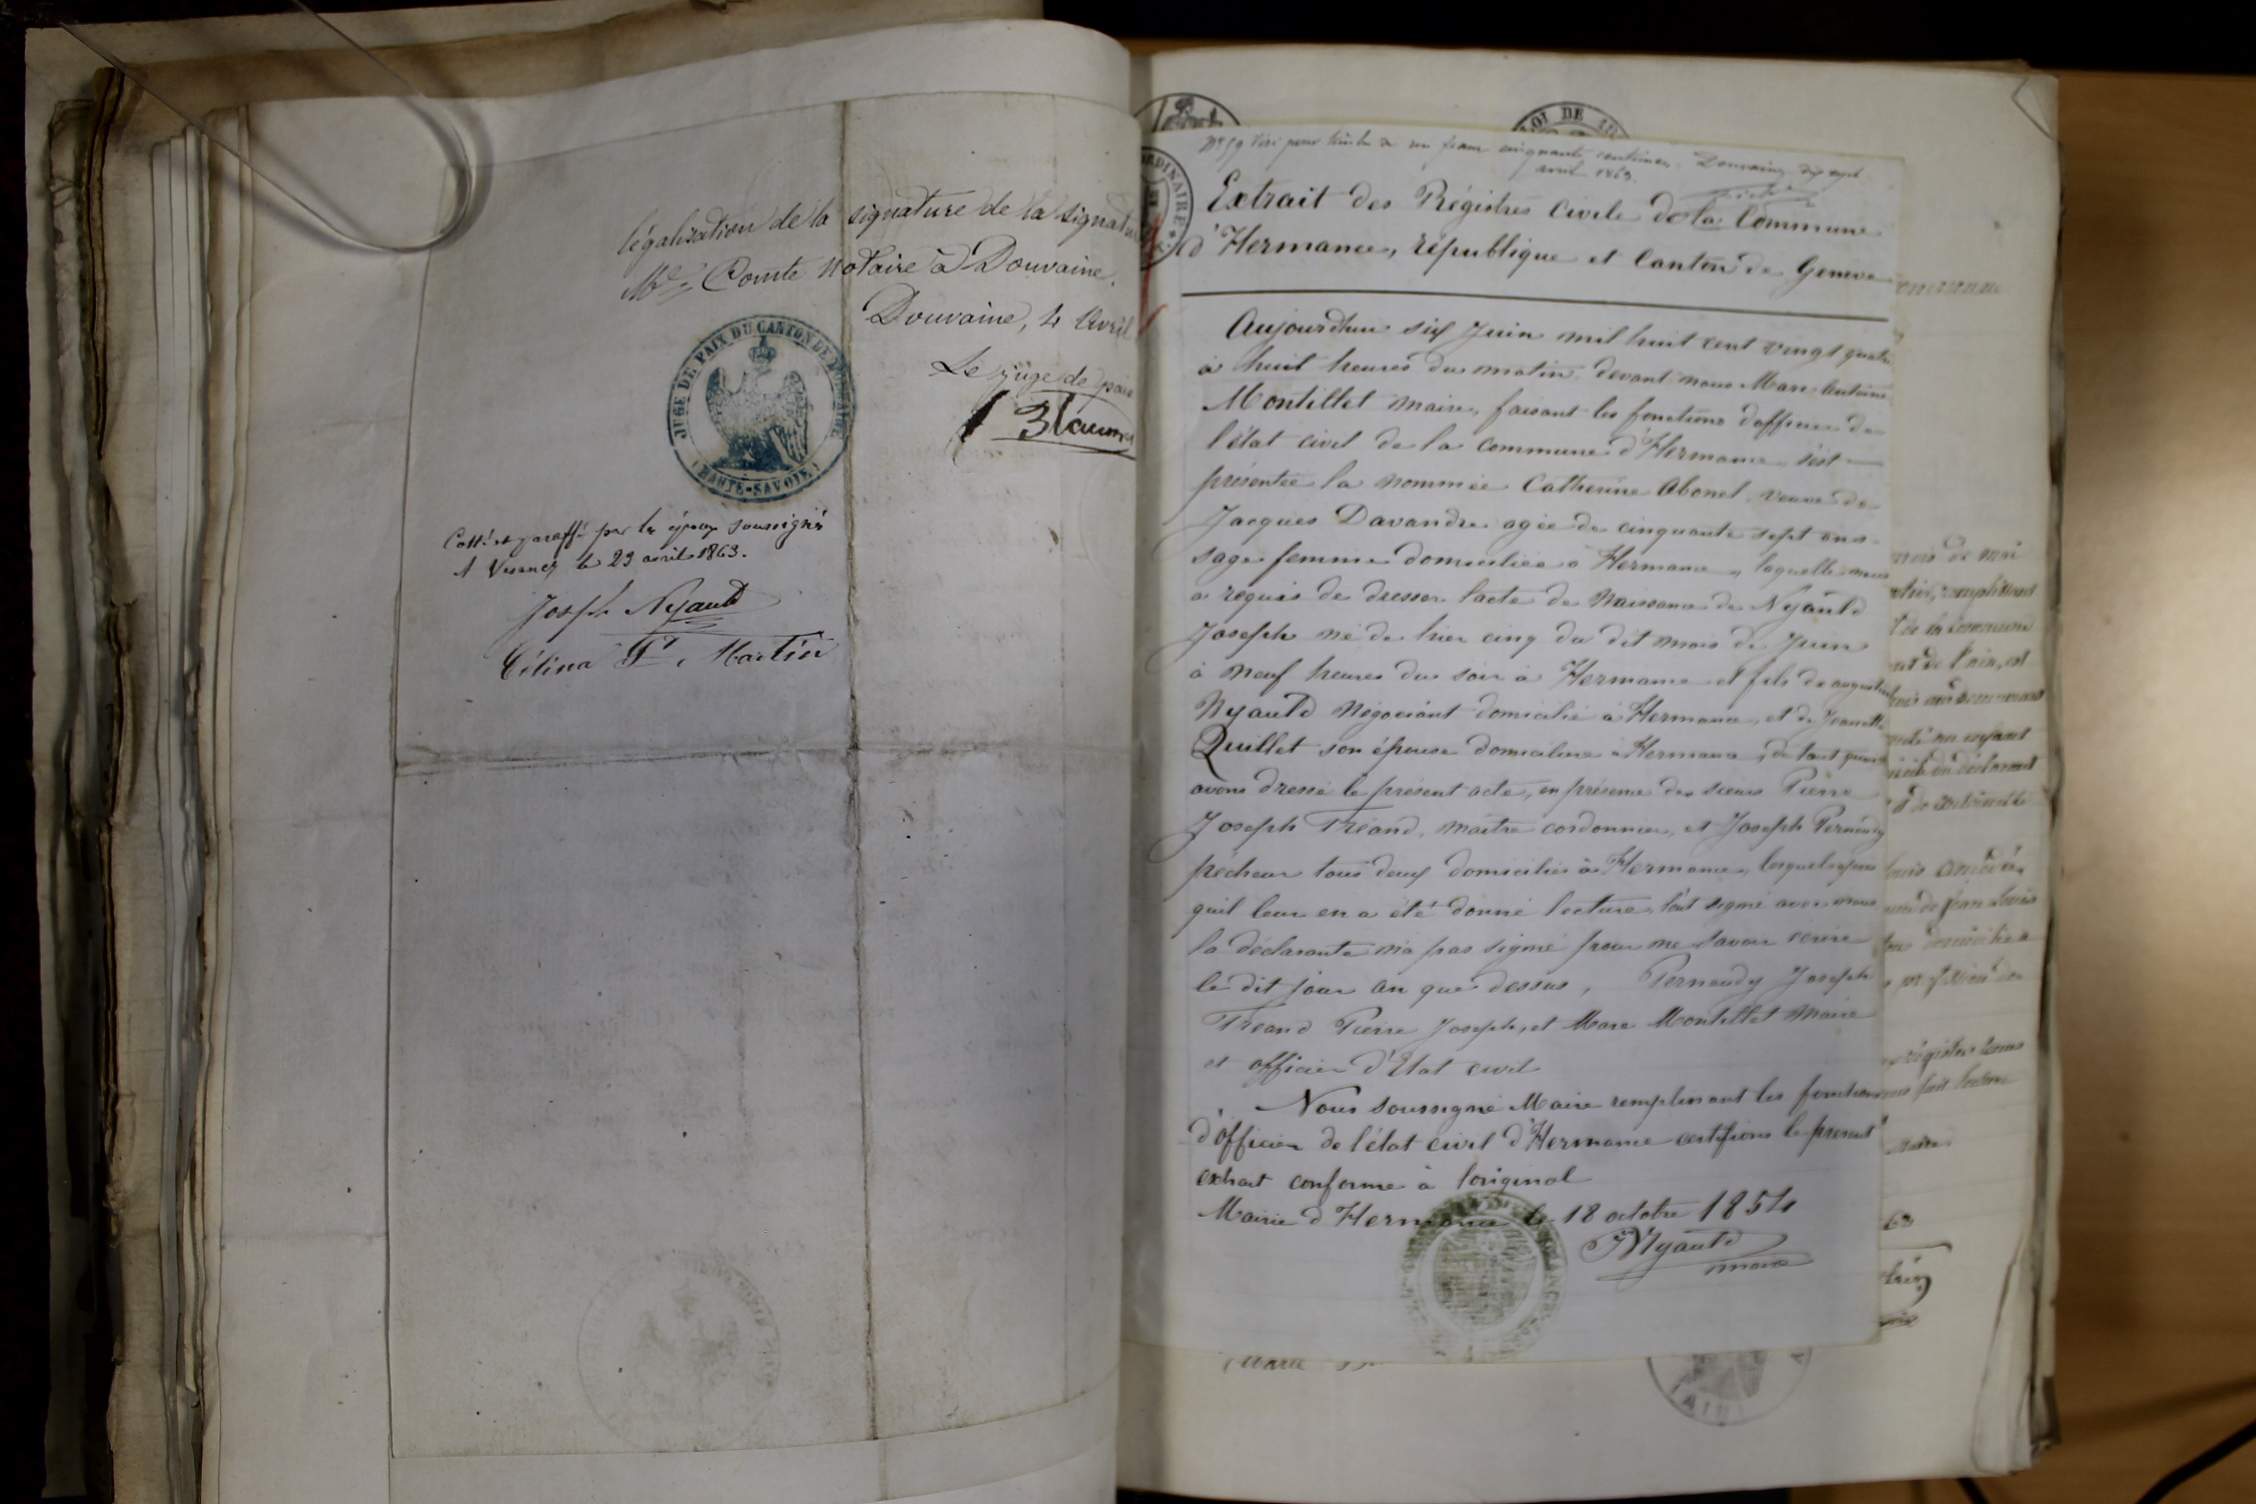 légalisation de la signature de la signat
Me Comte notaire à Douvaine.
Douvaine, 4 Avril
Le juge de paix
JUGE DE PAIX DU CANTON DE DOUVAINE
(HAUTE-SAVOIE)
Cotté et paraffé par les époux soussignés
A Veranez le 29 avril 1863.
Joseph Nyauld
Célina Martin
ROI DE
ORDINAIRE
Visé pour timbre de un franc cinquante centimes. Douvaine dix sept
avril 1863.
Extrait des Régistres Civils de la Commune
d'Hermance, république et Canton de Genève
Aujourdhui six Juin mil huit cent vingt quatre
à huit heures du matin devant nous Marc Antoine
Montillet maire, faisant les fonctions d'officier de
l'état civil de la commune d'Hermance s'est
présentée la nommée Catherine Abonel veuve de
Jacques Davandre agée de cinquante sept ans
sage femme domiciliée à Hermance, laquelle nous
a requis de dresser l'acte de Naissance de Nyauld
Joseph né de hier cinq du dit mois de Juin
à neuf heures du soir à Hermance et fils de augustin
Nyauld Négociant domicilié à Hermance, et de Jeannette
Quillet son épouse domiciliée à Hermance, de tout quoi
avons dressé le présent acte, en présence des sieurs Pierre
Joseph Tréand, maître cordonnier, et Joseph Pernoudy
pécheur tous deux domiciliés à Hermance, lesquels après
quil leur en a été donné lecture, l'ont signé avec nous
la déclarante n'a pas signé pour ne savoir écrire
le dit jour an que dessus, Pernoudy Joseph
Tréand Pierre Joseph, et Marc Montillet Maire
et officier d'Etat civil
Nous soussigné Maire remplissant les fonctions
d'officier de l'état civil d'Hermance certifions le présent
extrait conforme à l'original
Mairie d'Hermance le 18 octobre 1854
Nyauld
maire